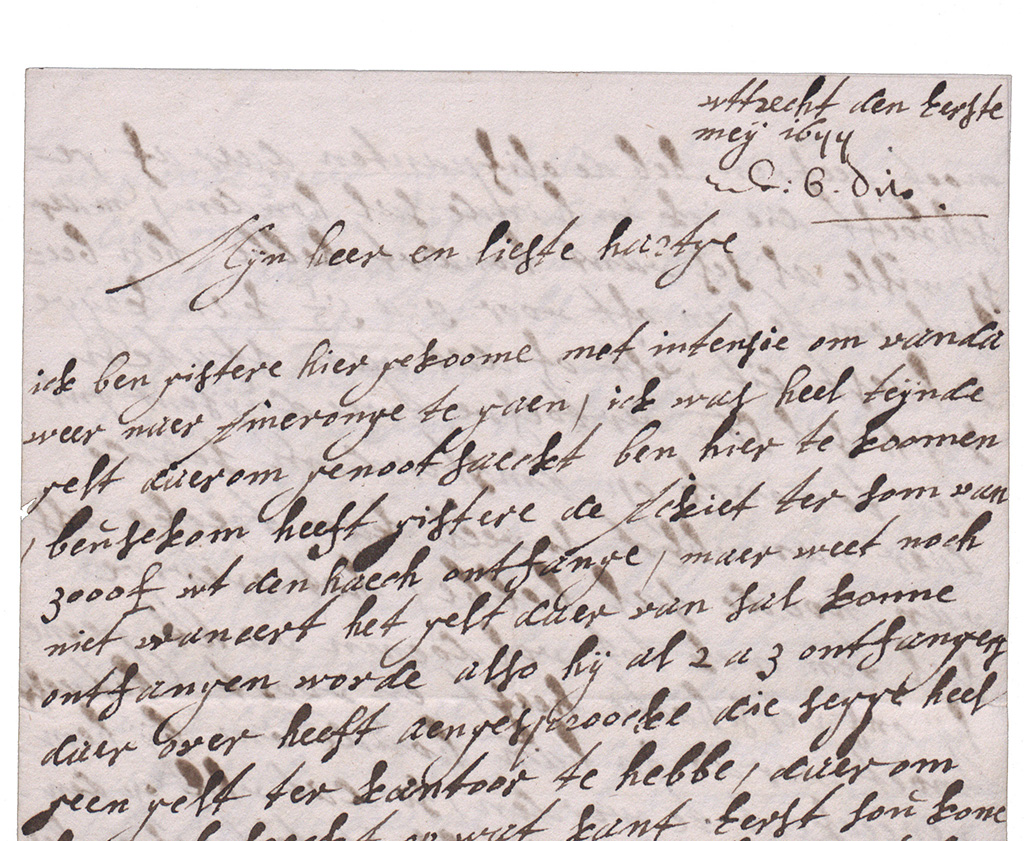 uttrecht den Eerste
meij 1677
6. 
Mijn heer en liefte hartye
ick ben gistere hier gekoome met intensie om vanda
weer naer Ameronge te gaen / ick was heel teijnde
gelt daerom genootsaeckt ben hier te koomen
/ beusekom heeft gistere de Asckiet ter som van
3000f ut den haech ontfange / maer weet noch
niet waneert het gelt daer van sal konne
ontfangen worde also hij al 2 a 3 ontfangers
daer over heeft aengesproocke die segge heel
geen gelt ter kantoor te hebbe / daerom
op wat kant Eerst soú kone